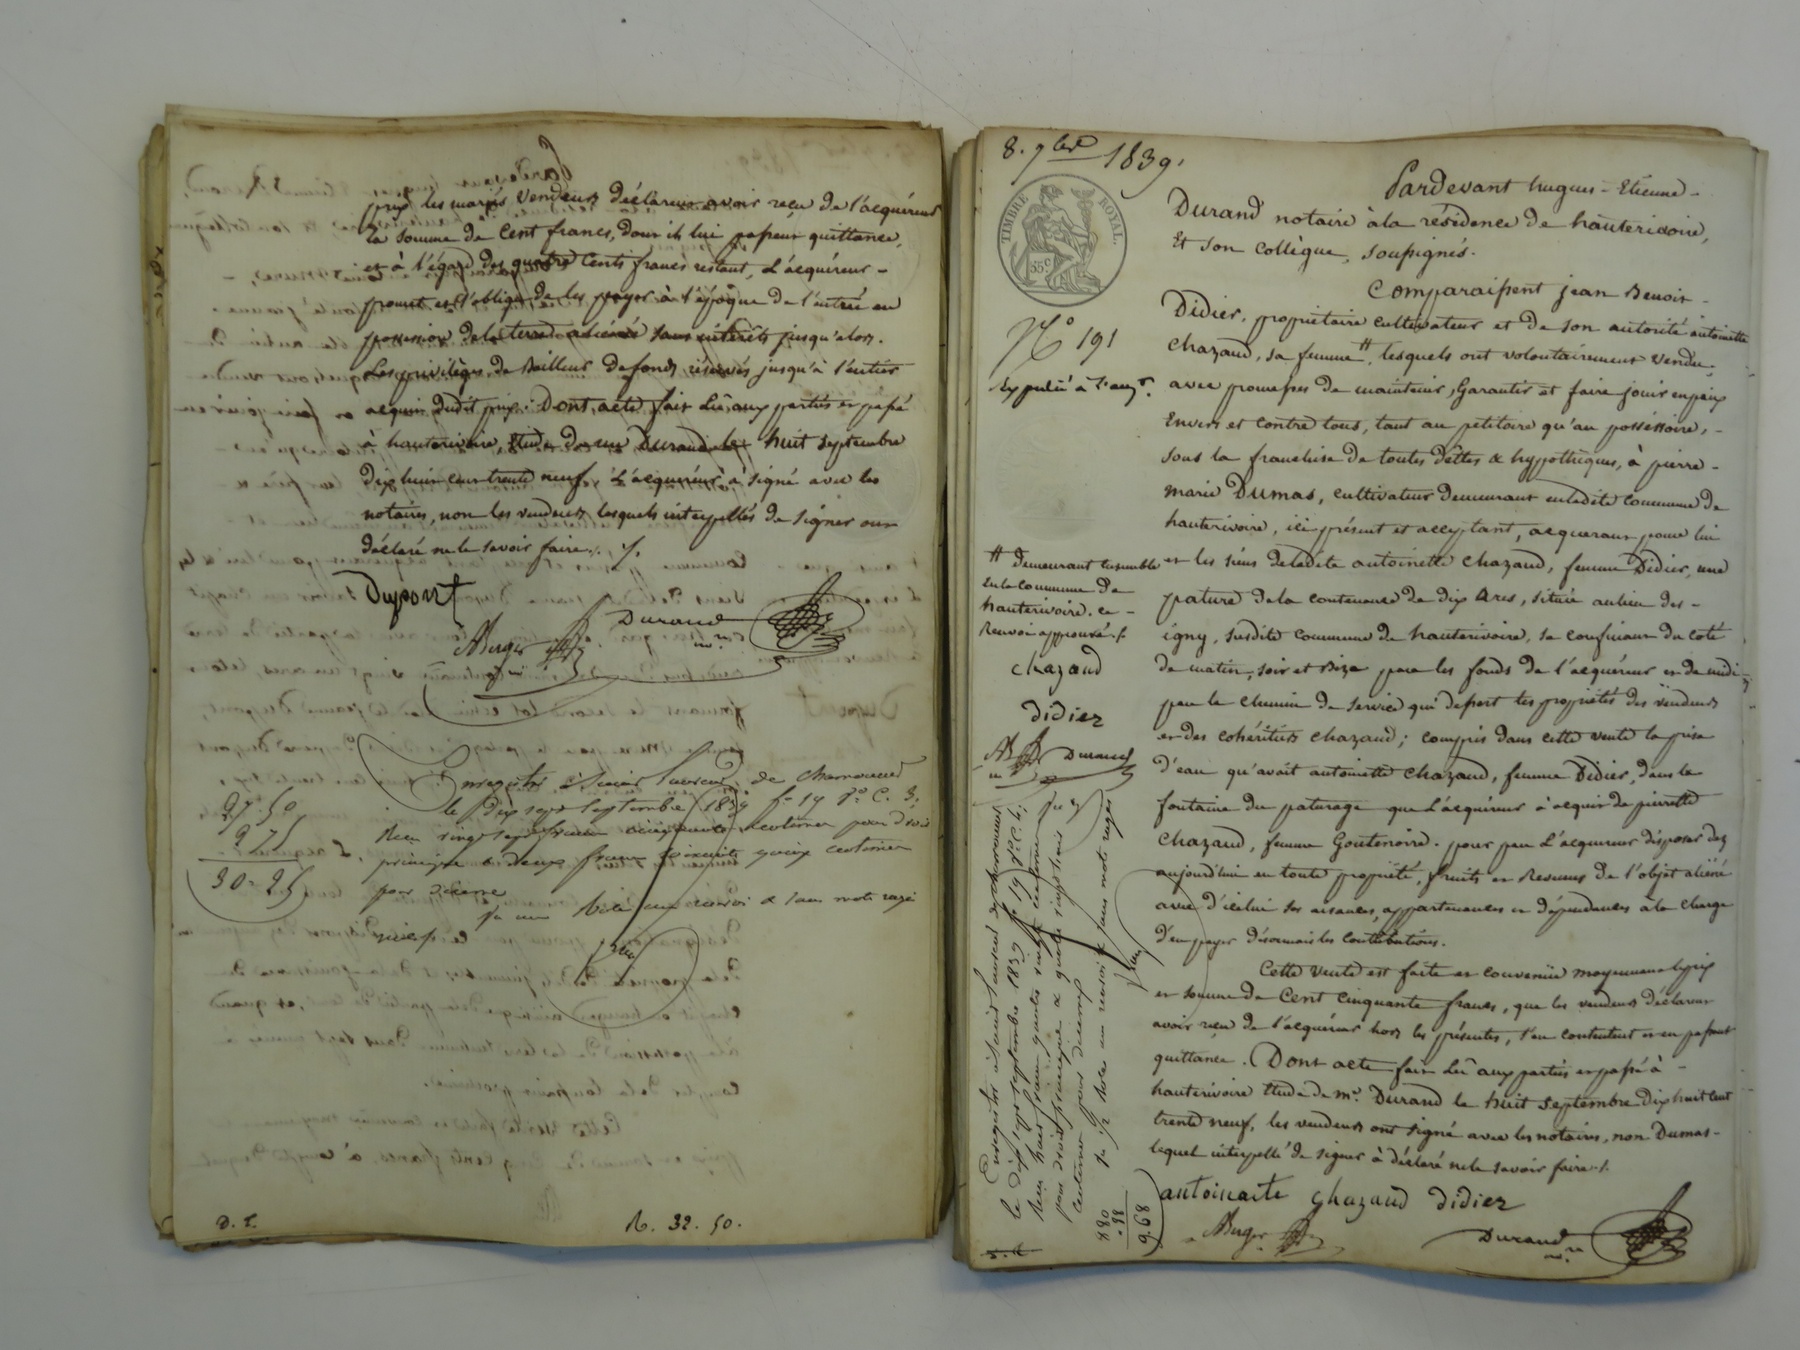 prix les mariés vendeurs déclarent avoir reçu de l'acquéreur
la somme de Cent francs, dont ils lui passent quittance,
et à l'égard des quatre Cents francs restant, L'acquéreur -
promet et s'oblige de les payer à l'époque de l'entrée en
possession de la terre aliénée sans intérêts jusqu'alors.
Les privilèges de Bailleur de fonds réservés jusqu'à l'entier
acquit dudit prix. Dont acte fait Lû aux parties et passé
à hauterivoire, Etude de me Durand le huit Septembre
dix huit cent trente neuf. L'acquéreur a signé avec les
notaires, non les vendeurs lesquels interpellés de signer ont
déclaré ne le savoir faire ./.
Dupont
Durand
nre
Enregistré à Saint Laurent de Chamousset
le dix sept Septembre 1839 f° 19 r° C. 3.
27. 50
Reçu vingt sept francs cinquante centimes pour droit
2 75
principal & deux francs soixante quinze centimes
30. 25
pour décime
sans mots rayé
D. L.
R. 32. 50.
8. 7bre 1839.
TIMBRE ROYAL.
35 c
Pardevant hugues - Etienne -
Durand notaire à la résidence de hauterivoire,
Et son collègue, soussignés.
Comparaissent jean Benoit -
Didier, propriétaire cultivateur et de son autorité antoinette
N° 191
Chazaud, sa femme #, lesquels ont volontairement vendu,
Exp
avec promesses de maintenir, Garantir et faire jouir en paix
Envers et contre tous, tant au pétitoire qu'au possessoire, -
sous la franchise de toutes dettes & hypothèques, à pierre -
marie Dumas, cultivateur demeurant en ladite commune de
hauterivoire, ici présent et acceptant, acquérant pour lui
et les siens de ladite antoinette Chazaud, femme Didier, une
# demeurant ensemble
En la commune de
hauterivoire. ce -
Renvoi approuvé ./.
Chazaud
didiez
Durand
pature de la contenance de dix Ares, située au lieu des -
igny, susdite commune de hauterivoire, se confinant du coté
de matin, soir et Bize par les fonds de l'acquéreur et de midi -
par le chemin de service qui désert les propriétés des vendeurs
et des cohéritiers Chazaud; compris dans cette vente la prise
d'eau qu'avait antoinette Chazaud, femme Didier, dans la
fontaine du paturage que L'acquéreur a acquis de pierrette
Chazaud, femme Goutenoire. pour par L'acquéreur disposer dez
aujourd'hui en toute propriété, fruits et Revenus de l'objet aliéné
avec d'icelui ses aisances, appartenances et dépendances à la charge
d'en payer désormais les Contributions.
Cette vente est faite et convenüe moyennant le prix
et somme de Cent cinquante francs, que les vendeurs déclarent
avoir reçu de l'acquéreur hors les présentes, s'en contentent et en passent
quittance. Dont acte fait Lû aux parties et passé à -
hauterivoire Etude de me. Durand le huit Septembre dix huit cent
trente neuf, les vendeurs ont signé avec les notaires, non Dumas -
lequel interpellé de signer à déclaré ne le savoir faire ./.
antoinaite Chazaud didiez
Durand
nre
Enregistré à Saint Laurent de Chamousset
le dix sept septembre 1839 f° 19 r° C. 4.
Reçu huit francs quatre vingt centimes
pour droit principal & quatre vingt huit
centimes pour décime
un renvoi & sans mots rayés